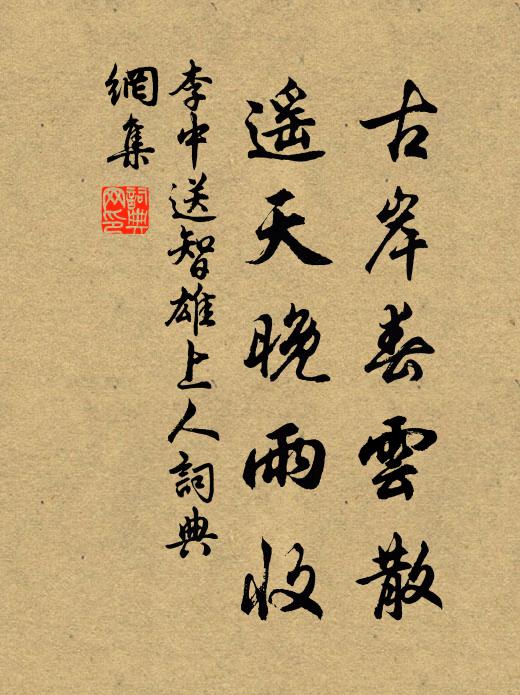 古岸春雲散
遥天晚雨收
李中送智雄上人詞典
網集
詞典網印